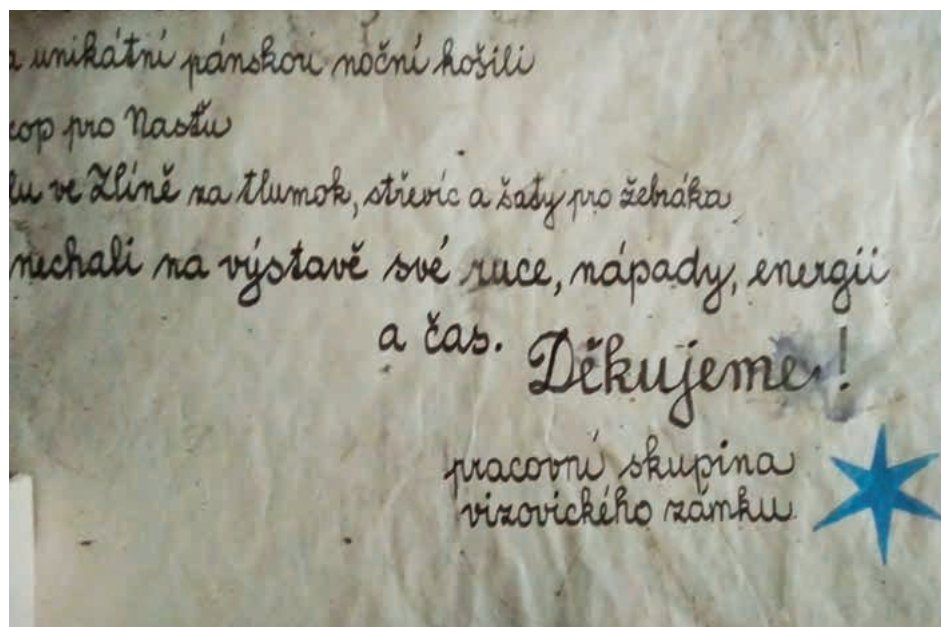 a unikátní pánskou noční košili
cop pro Nasťu
lu ve Zlíně za tlumok, střevíc a šaty pro žebráka
nechali na výstavě své ruce, nápady, energii
a čas. Děkujeme!
pracovní skupina
vizovického zámku